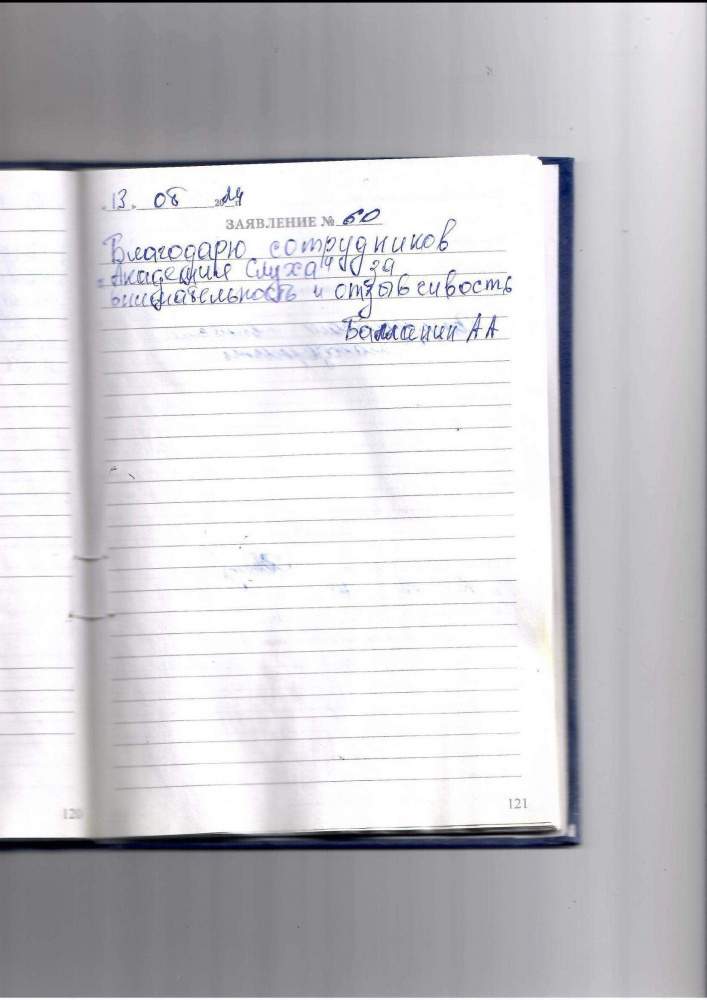 13. 08 2024
ЗАЯВЛЕНИЕ № 60
Благодарю сотрудников
"Академия Слуха" за
внимательность и отзывчивость
АА
120
121